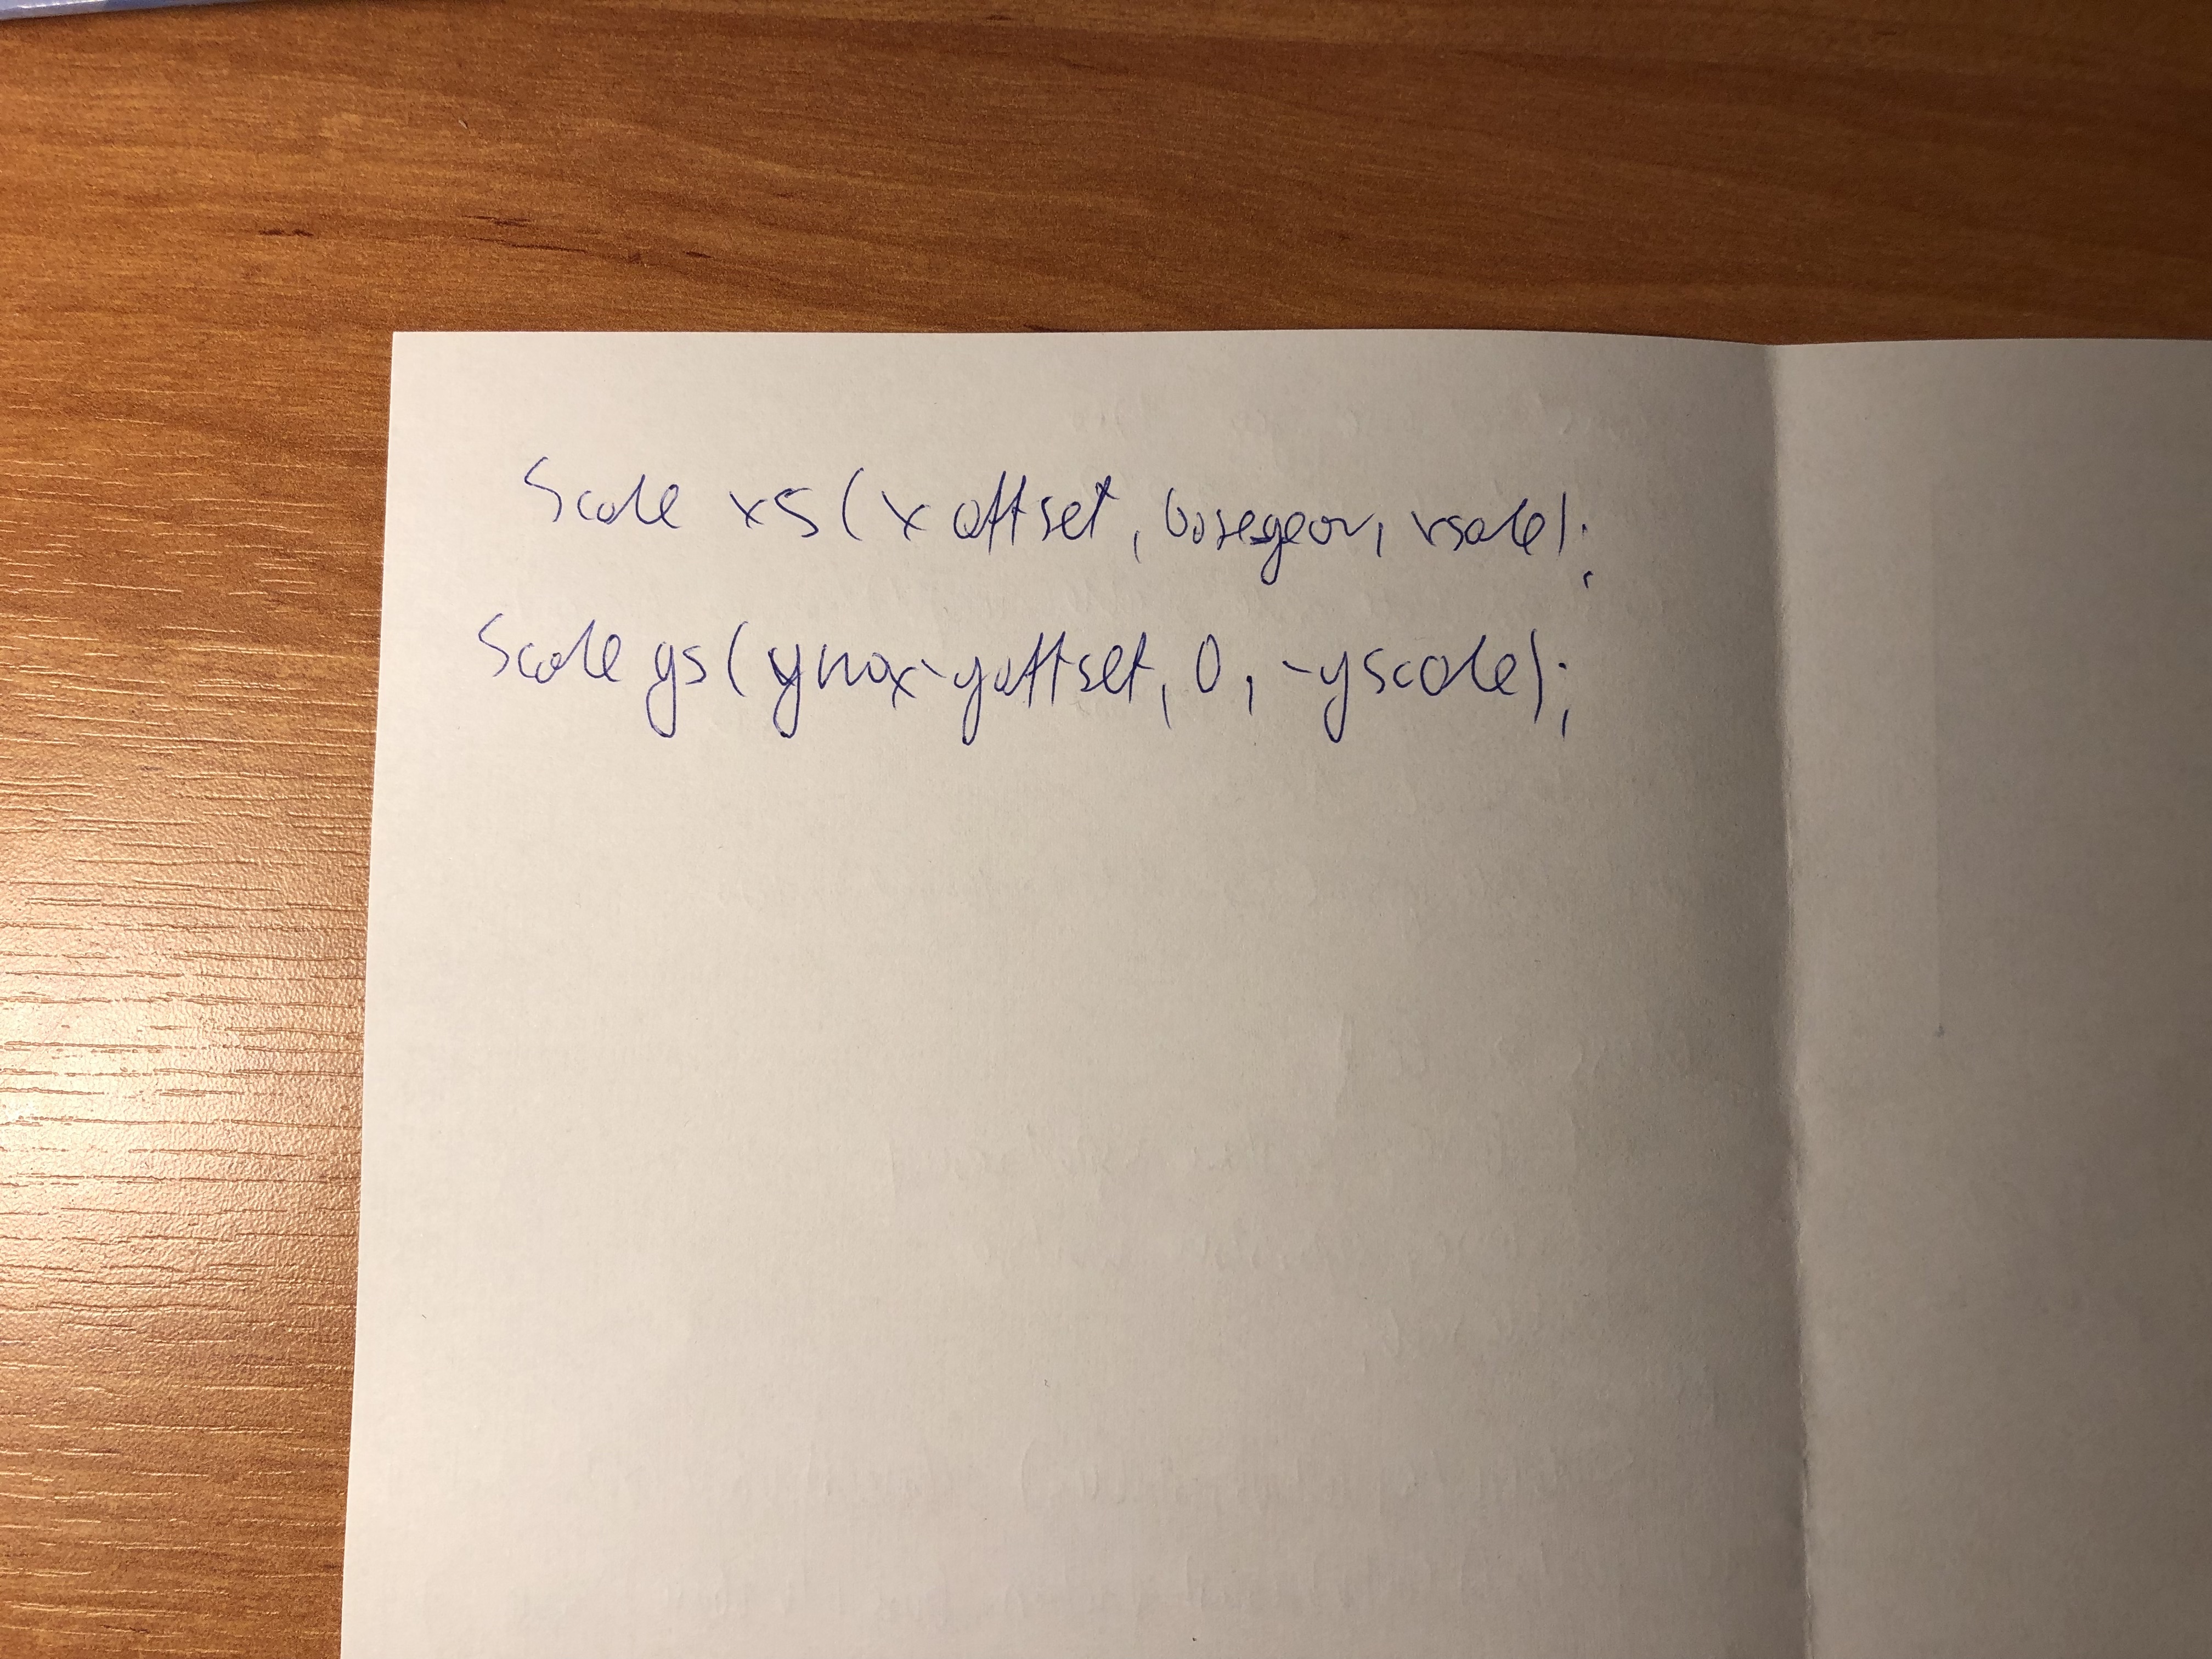 Scale xs(xoffset, base_year, xscale);
Scale ys(ymax-yoffset, 0, -yscale);